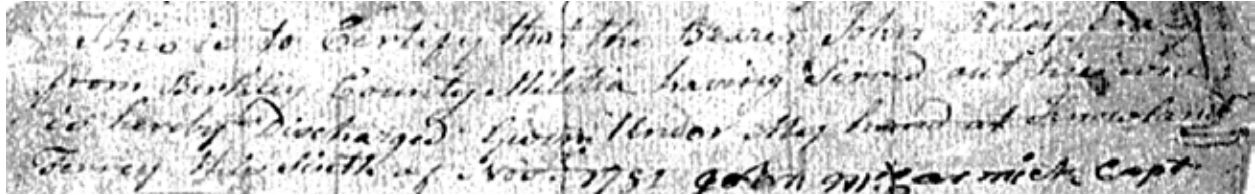 This is to Certify that the Bearer John Riley
from Berkley County Militia having Served out his time
is hereby Discharged Given Under My hand at
Ferrey this Sixth of Novr 1781 John McCarmick Capt